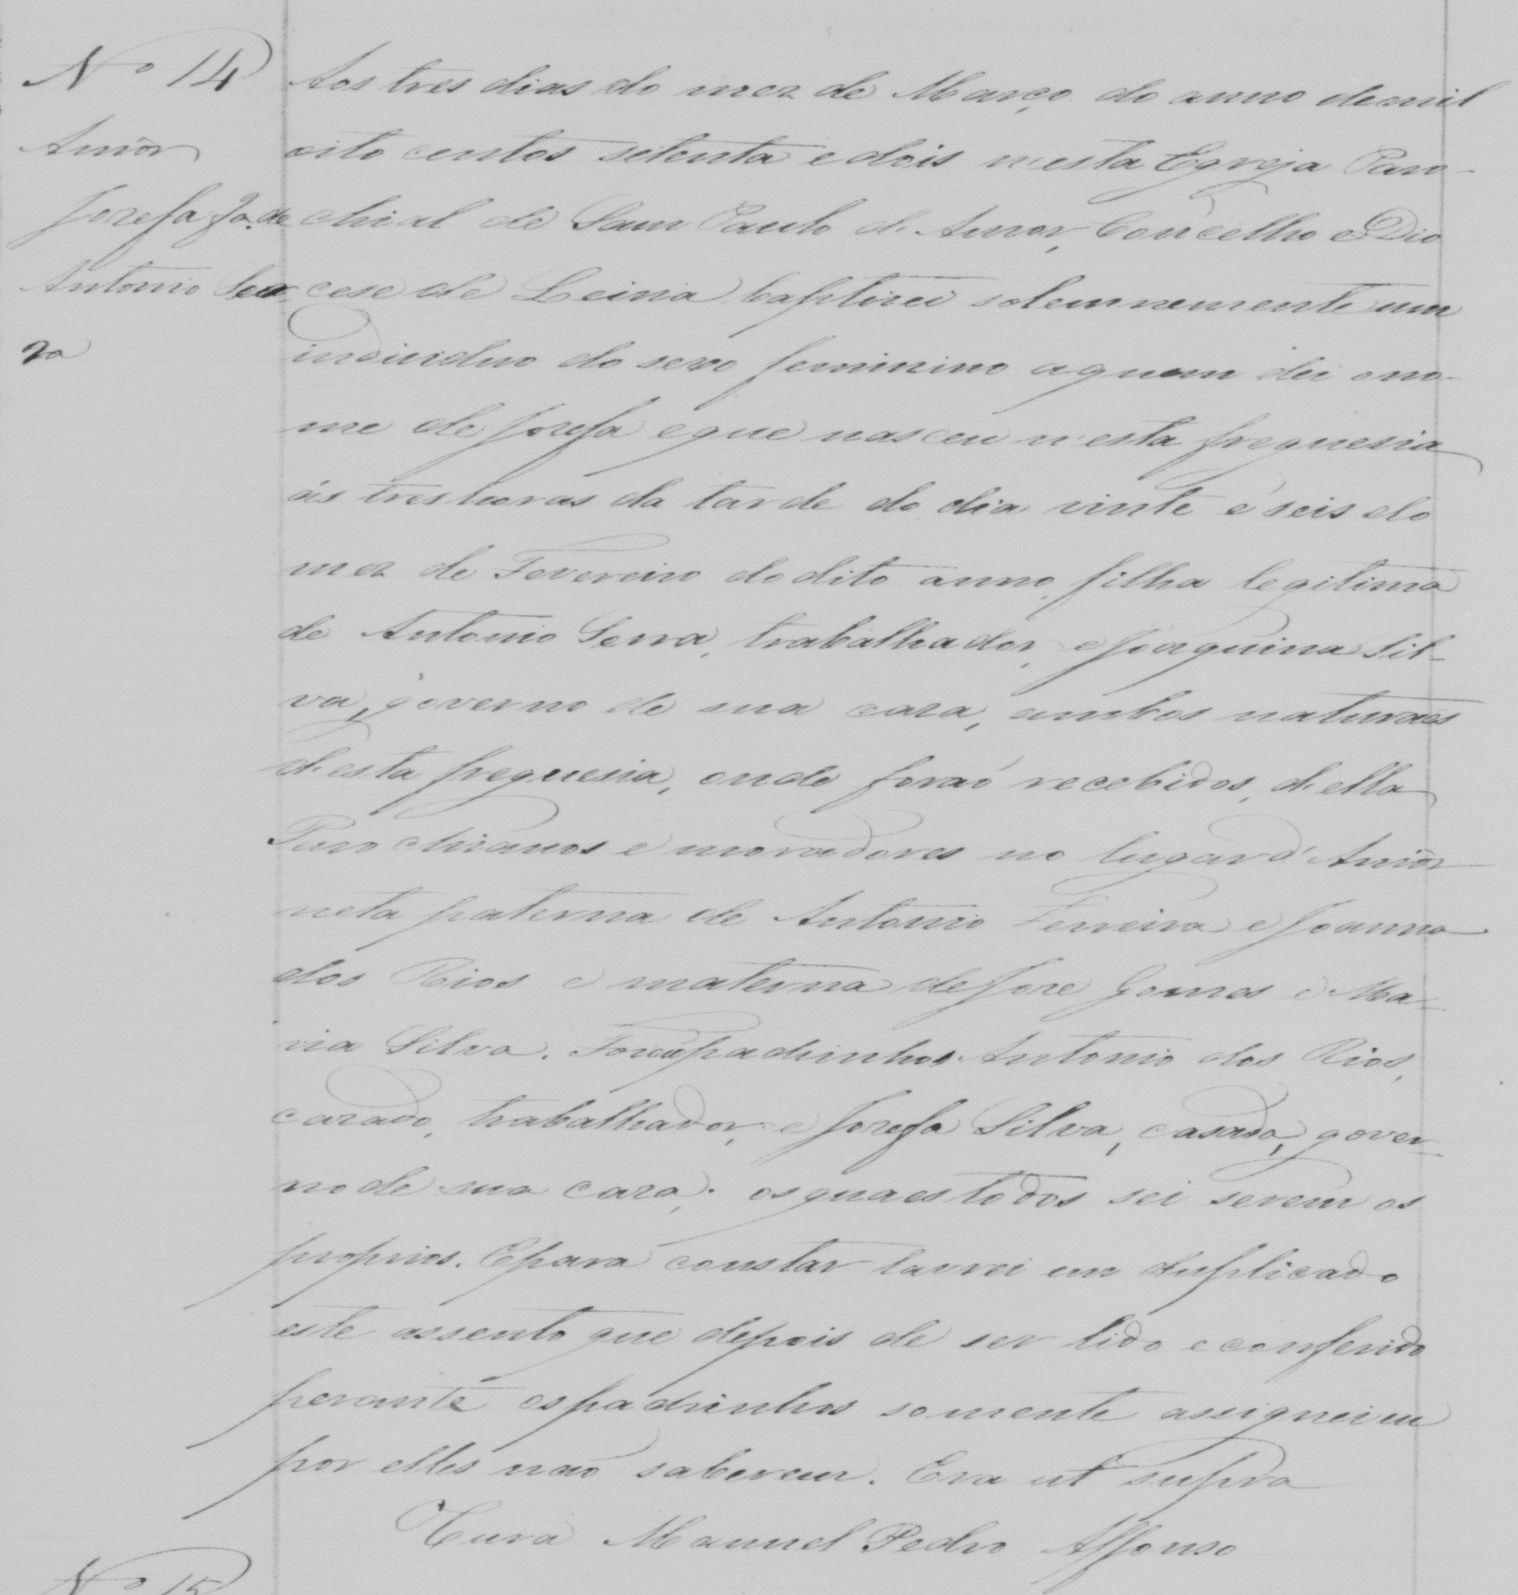 Nº 14
Amôr
Jozefa fa. de
Antonio Ser
ra
Aos tres dias do mez de Março do anno de mil
oito centos setenta e dois n'esta Egreja Paro-
chial de Sam Paulo d'Amor, Concelho e Dio
cese de Leiria baptizei solemnemente um
individuo do sexo feminino a quem dei o no-
me de Jozefa e que nasceu n'esta freguezia
ás tres horas da tarde do dia vinte e seis do
mez de Fevereiro do dito anno, filha legitima
de Antonio Serra, trabalhador, e Joaquina Sil-
va, governo de sua caza, ambos naturaes
d'esta freguezia, onde foraõ recebidos, d'ella
Parochianos e moradores no lugar d'Amôr
neta paterna de Antonio Ferreira e Joanna
dos Rios e materna de Joze Gomes e Ma-
ria Silva. Foraõ padrinhos Antonio dos Rios,
cazado, trabalhador, e Jozefa Silva, casada, gover-
no de sua caza; os quaes todos sei serem os
proprios. E para constar lavrei em duplicado
este assento que depois de ser lido e conferido
perante os padrinhos somente assignei eu
por elles naõ saberem. Era ut supra
O Cura Manuel Pedro Affonso
Nº 15